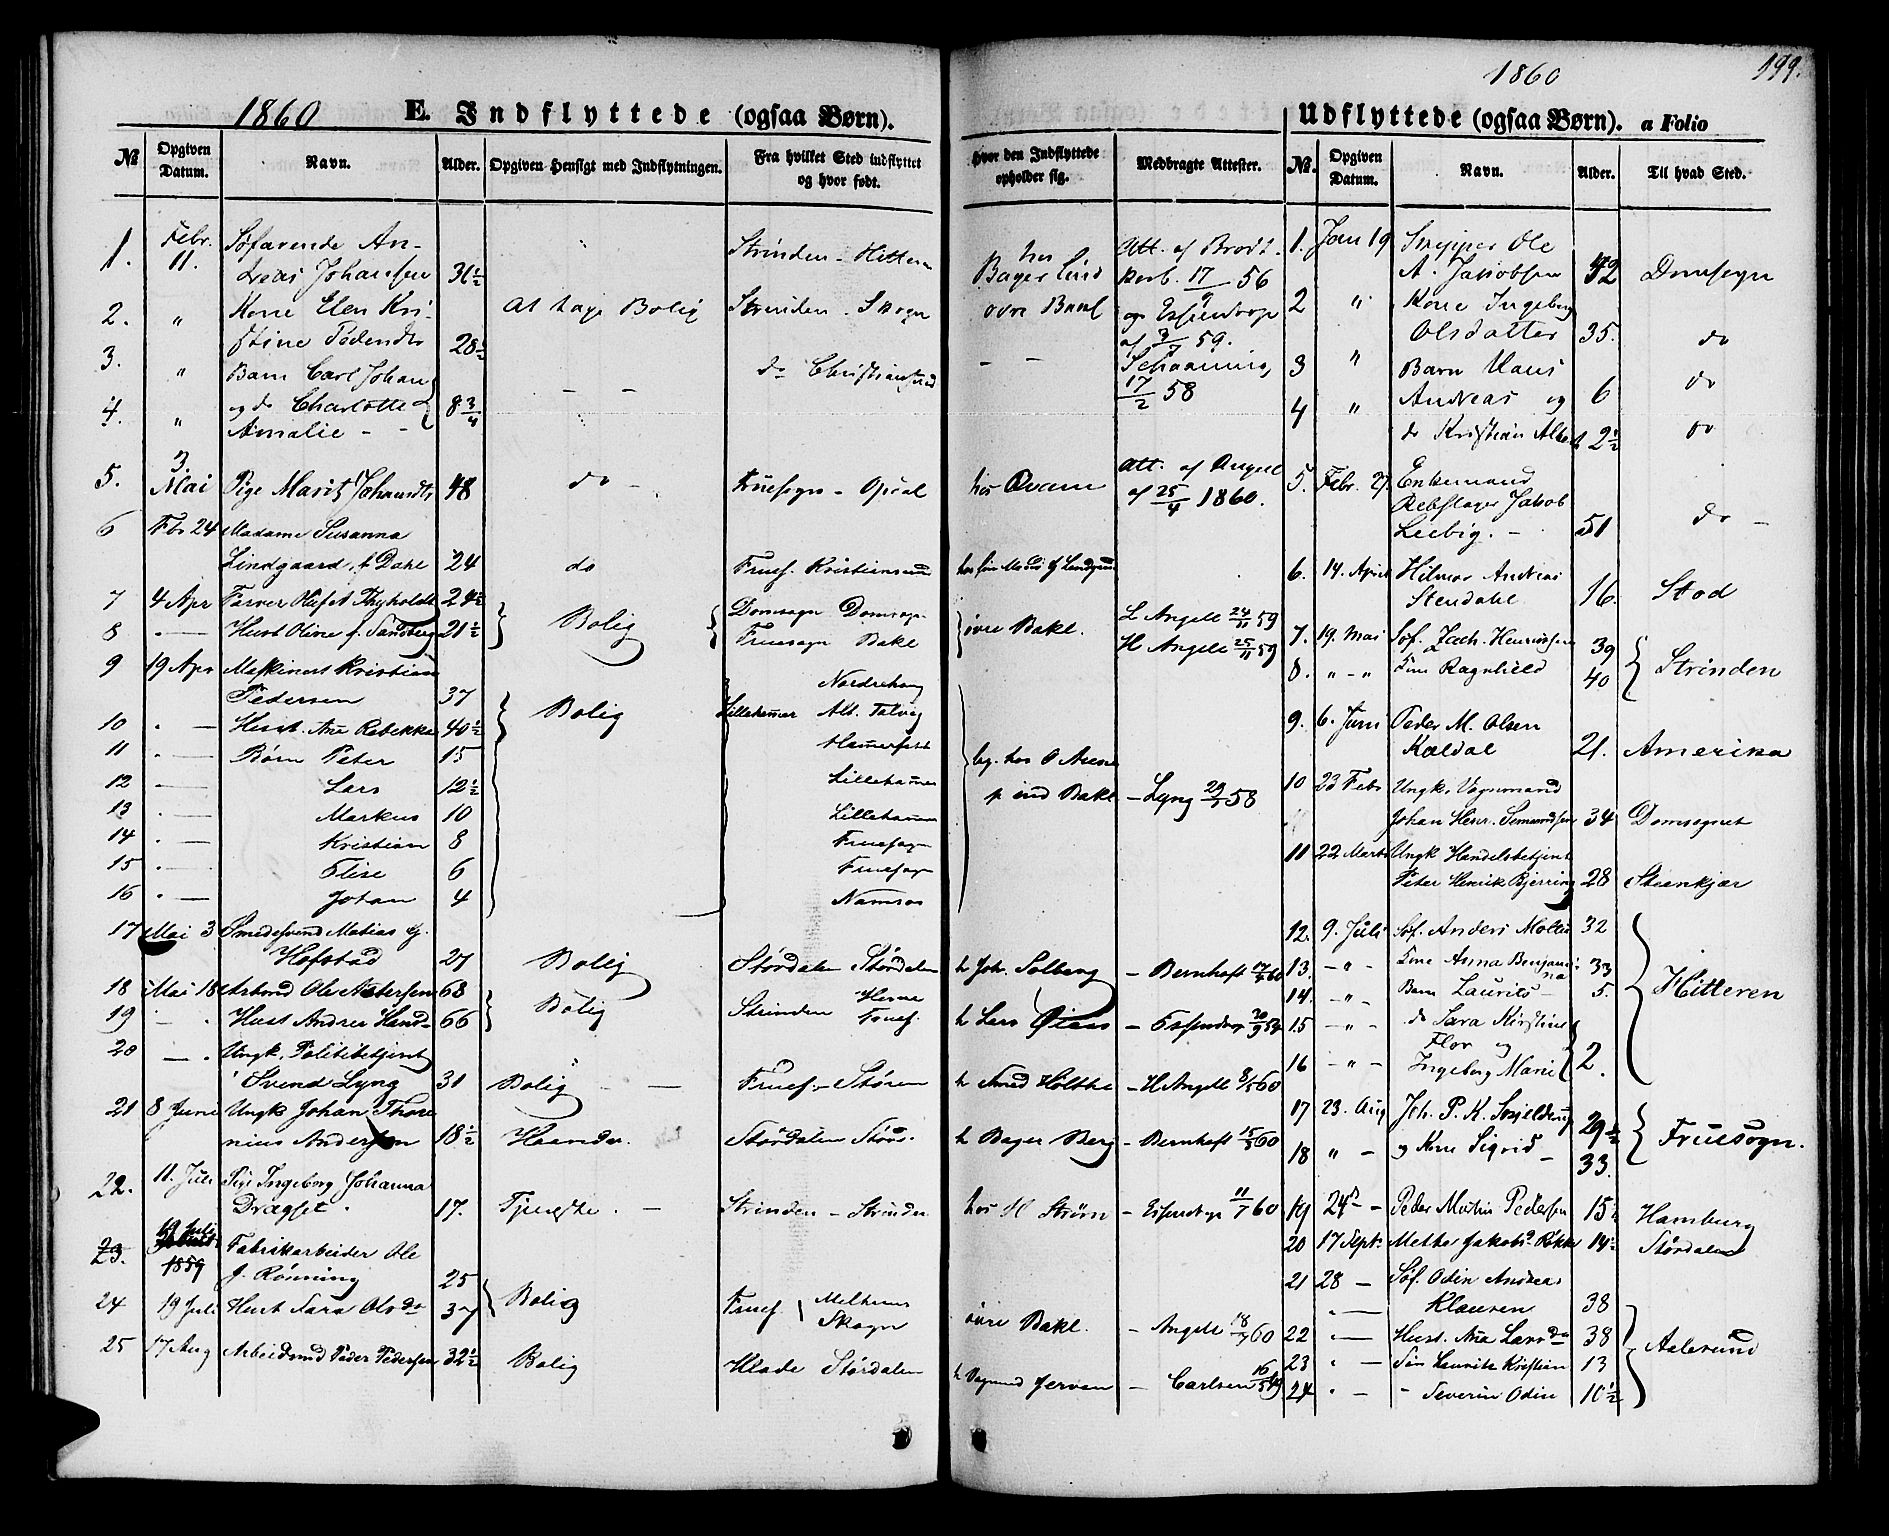 199.
1860 E. Indflyttede (ogsaa Børn).
1860 Udflyttede (ogsaa Børn). a Folio
№ Opgiven Datum. Navn. Alder. Opgiven Hensigt med Indflytningen. Fra hvilket Sted indflyttet og hvor født. Hvor den Indflyttede opholder sig. Medbragte Attester.
1. Febr. 11. Søfarende An-
dreas Johansen 31½ Strinden - Hitteren hos Bager Lind Att. af
17 56
2. " Kone Elen Kri-
stine Pedersdtr 28½ At tage Bolig Strinden - Skogn øvre Bakl
af 59.
3. " Barn Carl Johan - - do Christiansund - -
17/2 58
4. " og do Charlotte 8 3/4
Amalie - -
5. 3. Mai Pige Marit Johansdtr 48 do - Fruesogn - Opdal hos Qvam Att. af Angell
af 25/4 1860.
6 Fbr 24 Madame Susanna
Lindgaard, f. Dahl 24 do Fruesf. Kristiansund
7 4 Apr Farver Oluf A Thyholdt 24½ Bolig Domsogn Domsogn øvre Bakl. L Angell 24/11 59
8 - Hust Oline f. Sandberg 21½ Fruesogn Bakl H Angell 25/11 59
9 19 Apr Maskinest Kristian Nordrehoug
Pedersen 37 Bolig Lillehamer Alt. Talvig
10 " - Hust. Ane Rebekka 40½ Hamerfest
11 " - Børn Peter 15
12 - Lars 12½ Lillehamer
13 " - Markus 10 p ind Bakl - Lyng 58 Lillehamer
14 " - Kristian 8 Fruesogn
15 " - Elise 6 Fruesogn
16 " - Johan 4 Namsos
17 Mai 3 Smedesvend Matias
Hofstad 27 Bolig Stördalen Stördalen h Joh. Solberg - Bernhoft 60
18 Mai 18 Arbmd Ole Andersen 68 Bolig Strinden
19 - Hust Andrea Hand- 66 Fruef. h Lars
20 - Ungk. Politibetjent
Svend Lyng 31 Bolig - - Fruef. - Stören h Smed Holthe - H Angell 8/5 60
21 8 Juni Ungk Johan Thore
nius Andersen 18½ Haandv. Stördalen Störd. h Bager Berg - Bernhoft 15/5 60
22. 11. Juli Pige Ingeborg Johanna
Dragset 17. Tjeneste - Strinden - Strinden hos H Strøm - 11/7 60
23. 1859 Fabrikarbeider Ole
J. Rönning 25 Bolig
24 19 Juli Hust Sara Olsdr 37 Fruef. Melhuus Skogn øvre Bakl. - Angell 18/7 60
25 17 Aug Arbeidsmd Peder Pedersen 32½ Bolig Hlade Stördalen - Carlsen
№. Opgiven Datum. Navn. Alder. Til hvad Sted.
1. Jan 19 Skipper Ole
A. Jakobsen 42 Domsogn
2 " Kone Ingeborg
Olsdatter 35. do
3 " Barn Hans
Andreas og 6 do
4 " do Kristian Albert 2½ do
5. Febr. 27. Enkemand
Rebslager Jakob
Leebig. - 51 do -
6. 14. April Hilmar Andreas
Stendahl 16. Stod
7. 19. Mai Søf. Zach. Henriksen 39 Strinden
8. " - " Kone Ragnhild 40
9. 6. Juni Peder M. Olsen
Kaldal 21. Amerika
10 23 Febr Ungk. Vognmand
Johan Henr. 34 Domsognet
11 22 Marts Ungk Handelsbetjent
Peter Henrik Bjerring 28 Steenkjær
12. 9. Juli Søf. Anders Moltu 32 Hitteren
13. - " - Kone Anna Benjami-
na 33
14. - " - Barn Laurits - 5.
15 - " - do Sara Kirstine
Flor og
16 - " - Ingeborg Marie 2.
17 23. Aug Joh. P. K. Skjelderup 29½ Fruesogn.
18 " - og Kone Sigrid - 33.
19 24 - Peder Martin Pedersen 15½ Hamburg
20 17 Sept. Methe Jakobsd. Rökke 14½ Stördalen
21 28 - Søf. Odin Andreas
Klausen 38 Aalesund
22 - Hust. Ana Larsdr 38
23 " - Søn Lauritz Kristian 13
24 " - - Severin Odin 10½